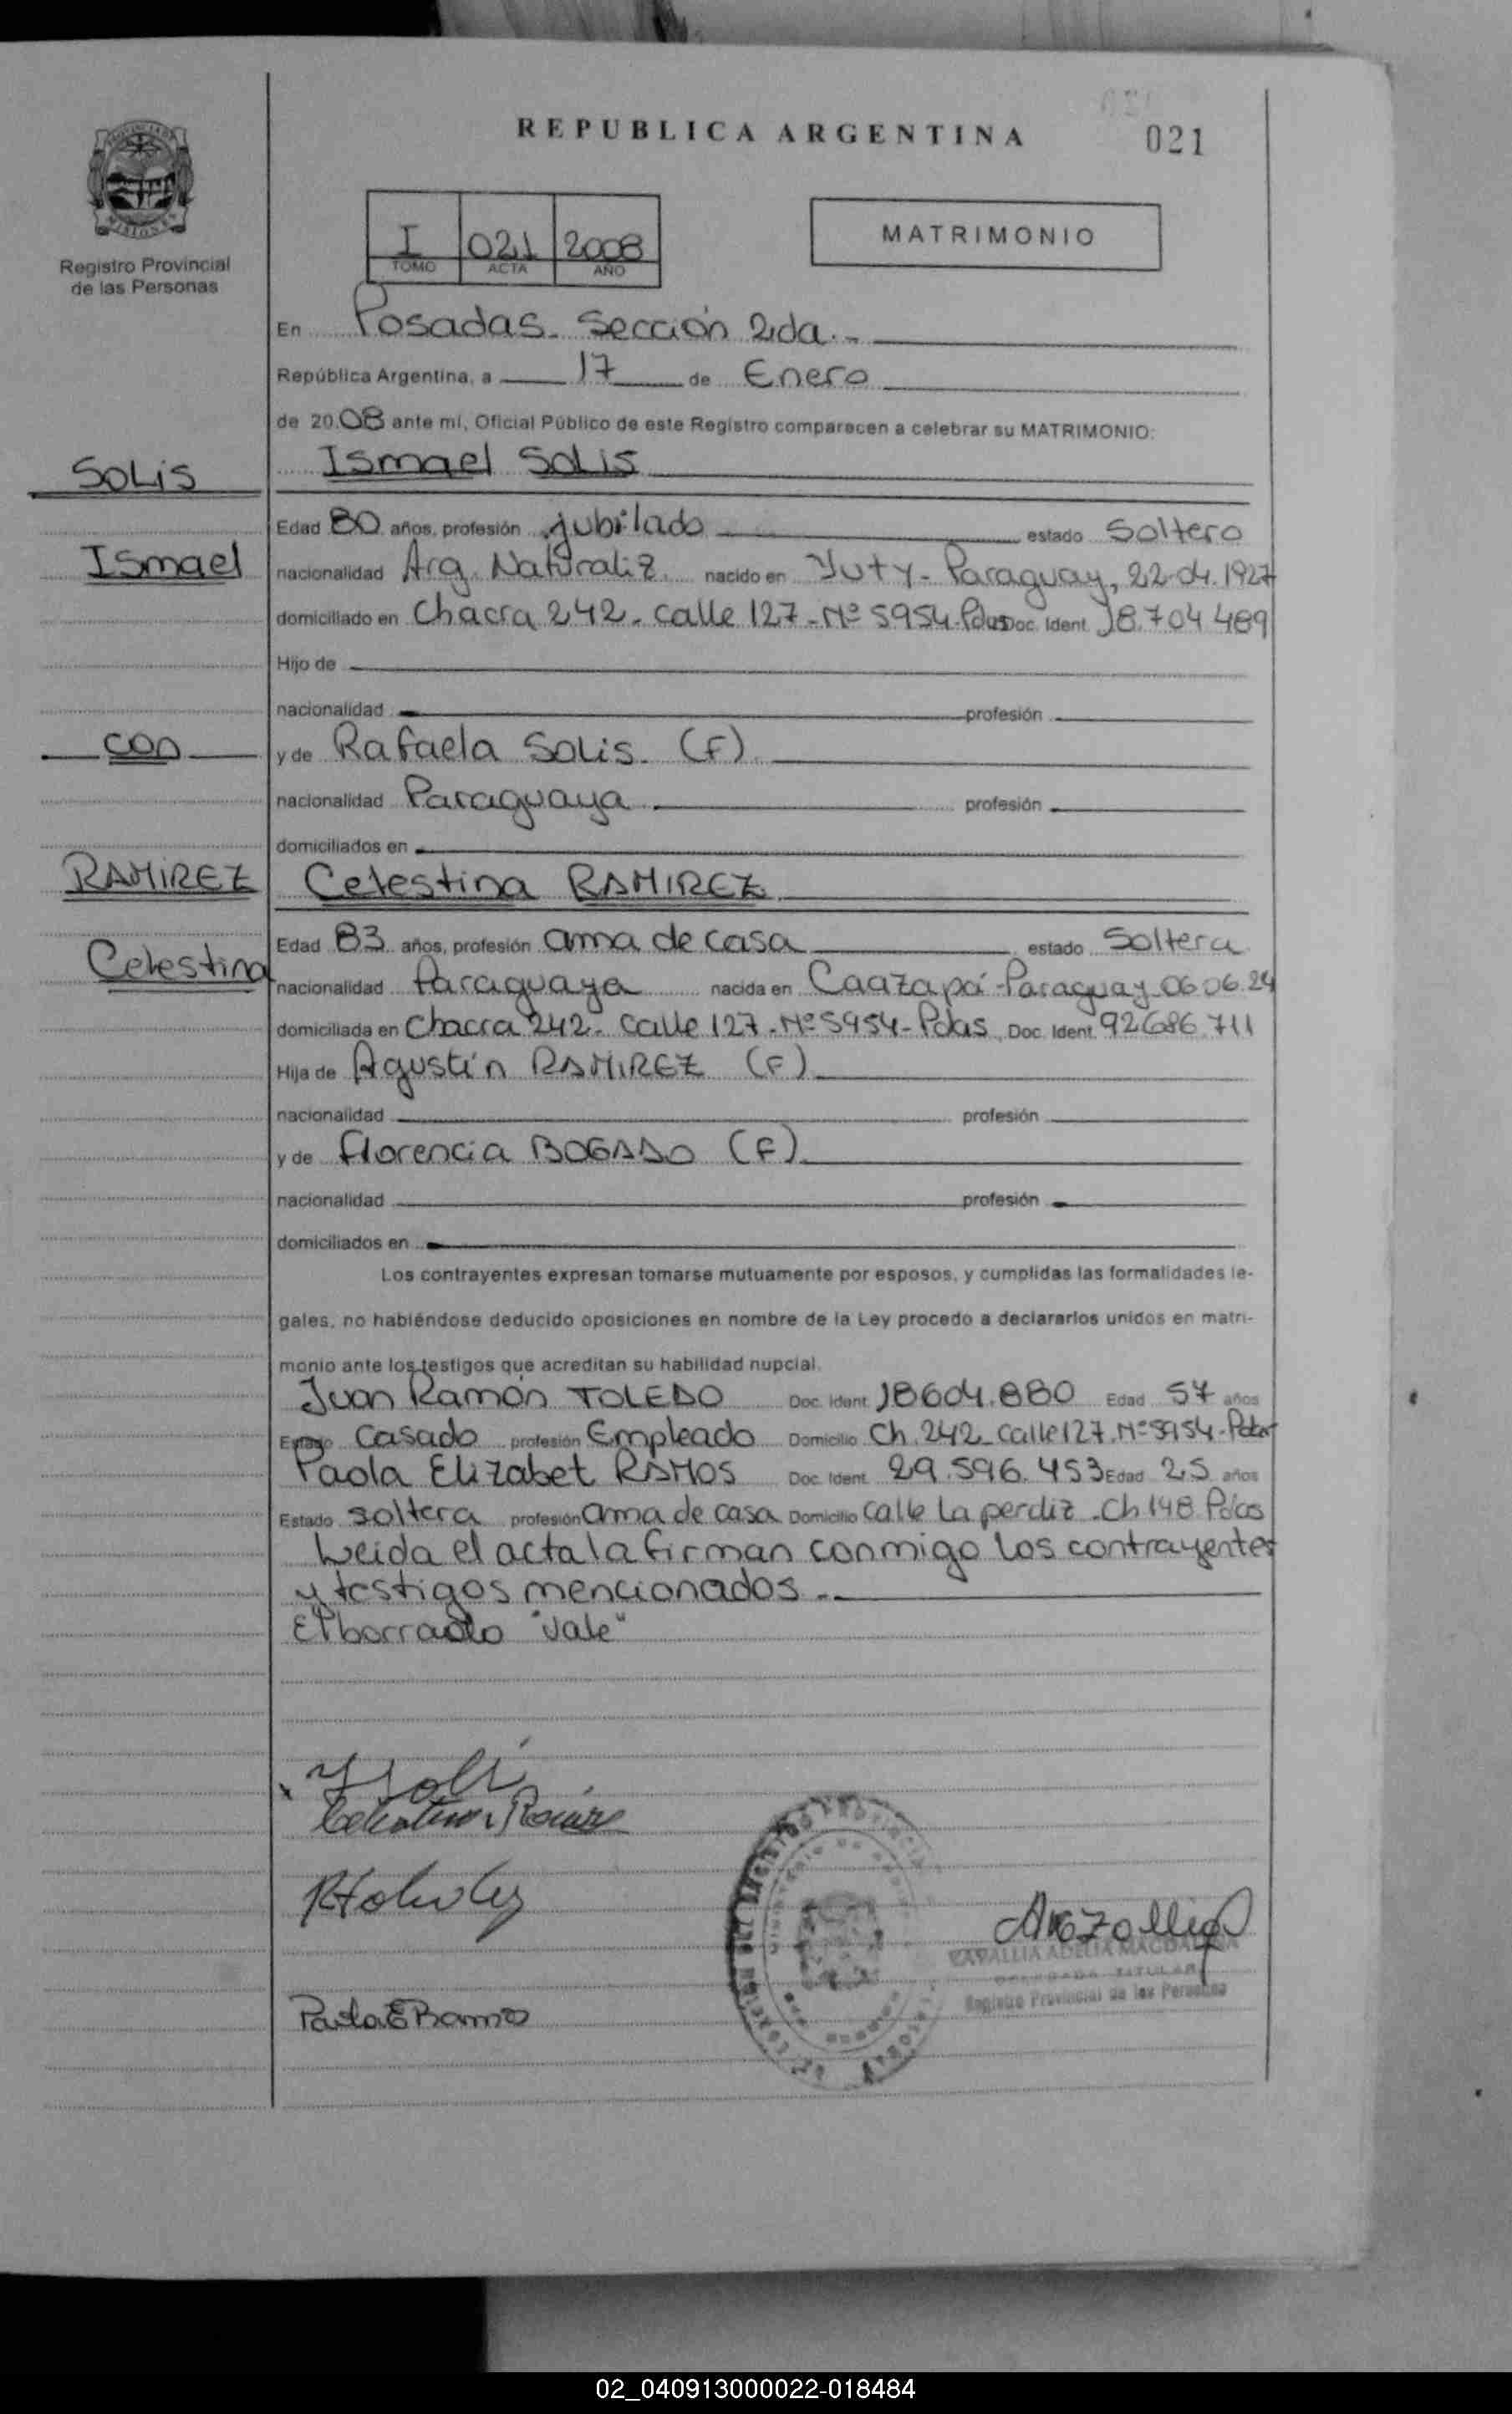 REPUBLICA ARGENTINA
021
Registro Provincial
de las Personas
I 021 2008
TOMO ACTA AÑO
MATRIMONIO
En Posadas - Sección 2da.-
República Argentina, a 17 de Enero
de 2008 ante mí, Oficial Público de este Registro comparecen a celebrar su MATRIMONIO:
SOLIS
Ismael SOLIS
Edad 80 años, profesión jubilado estado Soltero
Ismael
nacionalidad Arg. Naturaliz. nacido en Yuty - Paraguay, 22-04.1927
domiciliado en Chacra 242 - calle 127 - Nº 5954 - Pdas Doc. Ident. 18.704 489
Hijo de
nacionalidad profesión
con
y de Rafaela SOLIS. (F)
nacionalidad Paraguaya profesión
domiciliados en
RAMIREZ
Celestina RAMIREZ
Edad 83 años, profesión ama de casa estado Soltera
Celestina
nacionalidad Paraguaya nacida en Caazapá - Paraguay 06 06.24
domiciliada en Chacra 242 - calle 127 - Nº 5954 - Pdas Doc. Ident. 92686 711
Hija de Agustín RAMIREZ (F)
nacionalidad profesión
y de Florencia BOGADO (F)
nacionalidad profesión
domiciliados en
Los contrayentes expresan tomarse mutuamente por esposos, y cumplidas las formalidades le-
gales, no habiéndose deducido oposiciones en nombre de la Ley procedo a declararlos unidos en matri-
monio ante los testigos que acreditan su habilidad nupcial.
Juan Ramón TOLEDO Doc. Ident. 18604.880 Edad 57 años
Estado Casado profesión Empleado Domicilio Ch. 242 - calle 127. Nº 5954 - Pdas
Paola Elizabet RAMOS Doc. Ident. 29.596.453 Edad 25 años
Estado soltera profesión ama de casa Domicilio calle La perdiz - Ch 148 Pdas
Leida el acta la firman conmigo los contrayentes
y testigos mencionados.-
El borrado "vale"
Celestina Ramirez
Paola E Ramos
ADELIA MAGDALENA
DELEGADA TITULAR
Registro Provincial de las Personas
02_040913000022-018484